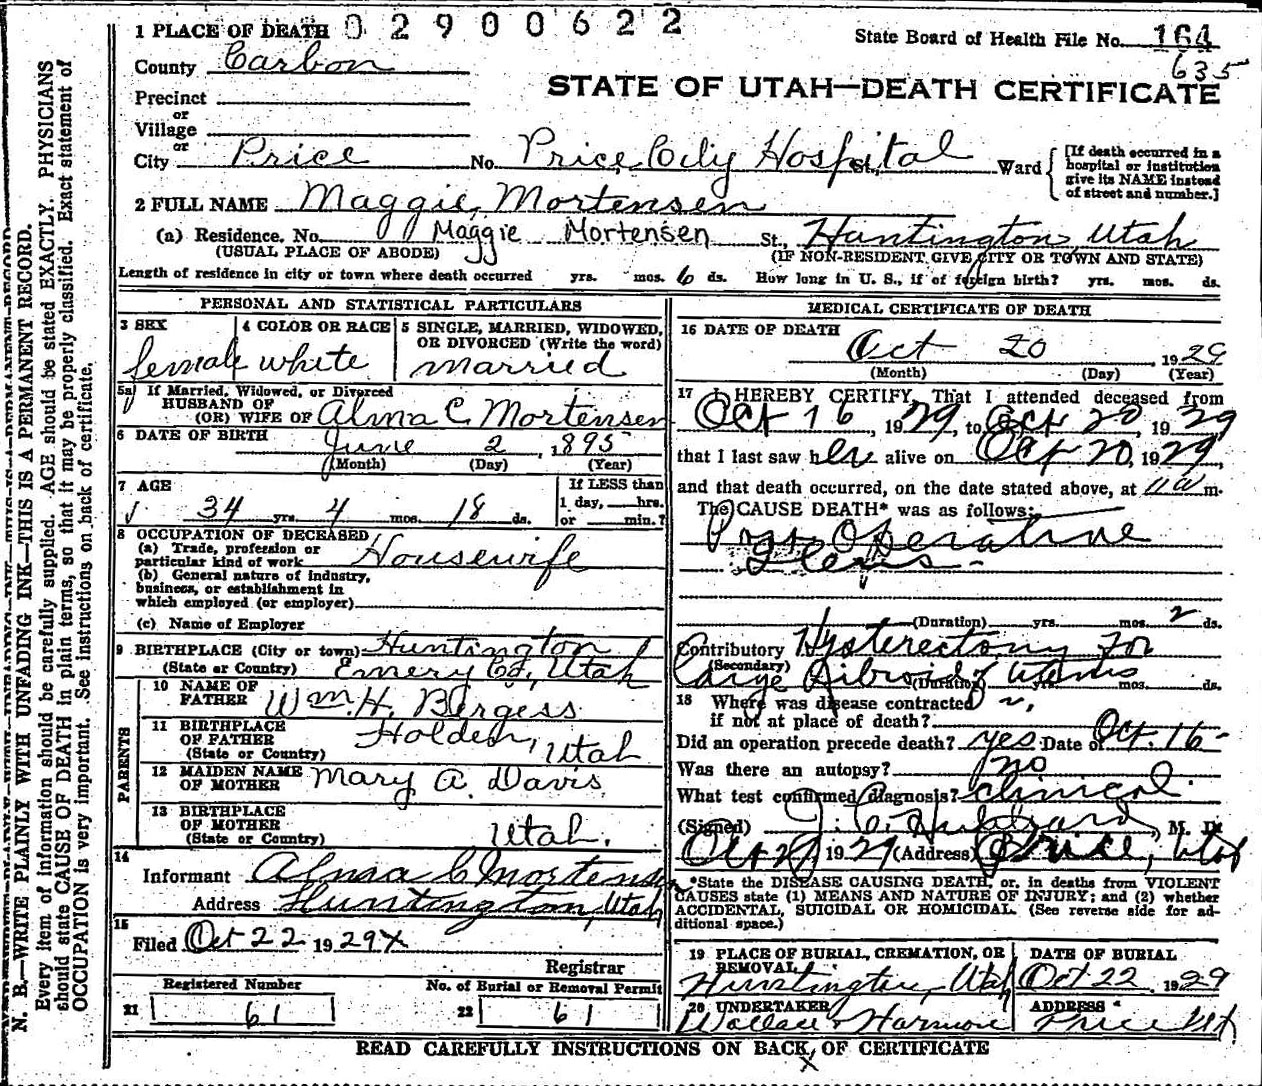 1 PLACE OF DEATH 02900622
State Board of Health File No. 164
635
County Carbon
STATE OF UTAH—DEATH CERTIFICATE
Precinct
or
Village
or
City Price No. Price City Hospital St., Ward
[If death occurred in a hospital or institution give its NAME instead of street and number.]
2 FULL NAME Maggie Mortensen
(a) Residence. No. Maggie Mortensen St., Huntington, Utah
(USUAL PLACE OF ABODE) (IF NON-RESIDENT GIVE CITY OR TOWN AND STATE)
Length of residence in city or town where death occurred yrs. mos. 6 ds. How long in U. S., if of foreign birth? yrs. mos. ds.
PERSONAL AND STATISTICAL PARTICULARS
3 SEX
female
4 COLOR OR RACE
white
5 SINGLE, MARRIED, WIDOWED,
OR DIVORCED (Write the word)
married
5a If Married, Widowed, or Divorced
HUSBAND OF
(OR) WIFE OF Alma C. Mortensen
6 DATE OF BIRTH June 2, 1895
(Month) (Day) (Year)
7 AGE
34 yrs. 4 mos. 18 ds.
If LESS than
1 day, hrs.
or min.?
8 OCCUPATION OF DECEASED
(a) Trade, profession or
particular kind of work Housewife
(b) General nature of industry,
business, or establishment in
which employed (or employer)
(c) Name of Employer
9 BIRTHPLACE (City or town) Huntington
(State or Country) Emery Co., Utah
PARENTS
10 NAME OF
FATHER Wm. H. Burgess
11 BIRTHPLACE
OF FATHER
(State or Country) Holden, Utah
12 MAIDEN NAME
OF MOTHER Mary A. Davis
13 BIRTHPLACE
OF MOTHER
(State or Country) Utah.
14
Informant Alma C Mortensen
Address Huntington, Utah
15
Filed Oct 22 1929
Registrar
Registered Number
21 61
No. of Burial or Removal Permit
22 61
MEDICAL CERTIFICATE OF DEATH
16 DATE OF DEATH
Oct 20 1929
(Month) (Day) (Year)
17 I HEREBY CERTIFY, That I attended deceased from
Oct 16, 1929, to Oct 20, 1929
that I last saw her alive on Oct 20, 1929,
and that death occurred, on the date stated above, at 11 a m.
The CAUSE DEATH* was as follows:
Post Operative
Ileus
(Duration) yrs. mos. 2 ds.
Contributory Hysterectomy for
(Secondary) Large Fibroid of Uterus
(Duration) yrs. mos. ds.
18 Where was disease contracted
if not at place of death?
Did an operation precede death? yes Date of Oct. 16-
Was there an autopsy? no
What test confirmed diagnosis? clinical
(Signed) J. C. Hubbard, M. D.
Oct 1929 (Address) Price, Utah
*State the DISEASE CAUSING DEATH, or, in deaths from VIOLENT
CAUSES state (1) MEANS AND NATURE OF INJURY; and (2) whether
ACCIDENTAL, SUICIDAL OR HOMICIDAL. (See reverse side for ad-
ditional space.)
19 PLACE OF BURIAL, CREMATION, OR
REMOVAL
Huntington, Utah
DATE OF BURIAL
Oct 22 1929
20 UNDERTAKER
Wallace & Harmon
ADDRESS
Price Ut
READ CAREFULLY INSTRUCTIONS ON BACK OF CERTIFICATE
N. B.—WRITE PLAINLY WITH UNFADING INK—THIS IS A PERMANENT RECORD.
Every item of information should be carefully supplied. AGE should be stated EXACTLY. PHYSICIANS
should state CAUSE OF DEATH in plain terms, so that it may be properly classified. Exact statement of
OCCUPATION is very important. See instructions on back of certificate.